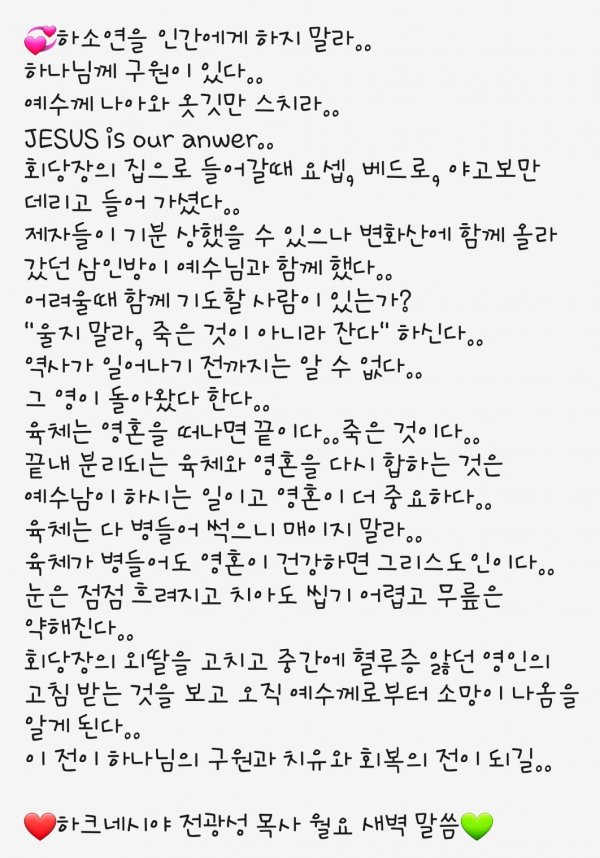 💞하소연을 인간에게 하지 말라。。
하나님께 구원이 있다。。
예수께 나아와 옷깃만 스치라。。
JESUS is our anwer。。
회당장의 집으로 들어갈때 요셉, 베드로, 야고보만
데리고 들어 가셨다。。
제자들이 기분 상했을 수 있으나 변화산에 함께 올라
갔던 삼인방이 예수님과 함께 했다。。
어려울때 함께 기도할 사람이 있는가?
"울지 말라, 죽은 것이 아니라 잔다" 하신다。。
역사가 일어나기 전까지는 알 수 없다。。
그 영이 돌아왔다 한다。。
육체는 영혼을 떠나면 끝이다。。죽은 것이다。。
끝내 분리되는 육체와 영혼을 다시 합하는 것은
예수남이 하시는 일이고 영혼이 더 중요하다。。
육체는 다 병들어 썩으니 매이지 말라。。
육체가 병들어도 영혼이 건강하면 그리스도인이다。。
눈은 점점 흐려지고 치아도 씹기 어렵고 무릎은
약해진다。。
회당장의 외딸을 고치고 중간에 혈루증 앓던 영인의
고침 받는 것을 보고 오직 예수께로부터 소망이 나옴을
알게 된다。。
이 전이 하나님의 구원과 치유와 회복의 전이 되길。。
❤️하크네시야 전광성 목사 월요 새벽 말씀💚